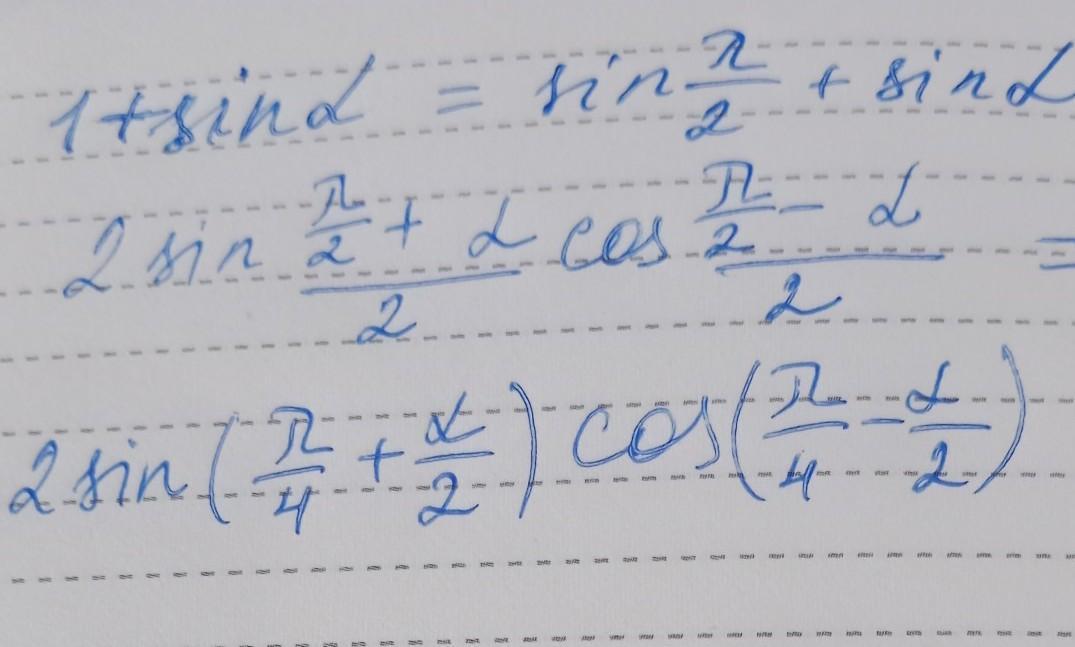 1+sinα = sin π/2 + sinα
2 sin (π/2 + α)/2 cos (π/2 - α)/2 =
2 sin (π/4 + α/2) cos (π/4 - α/2)